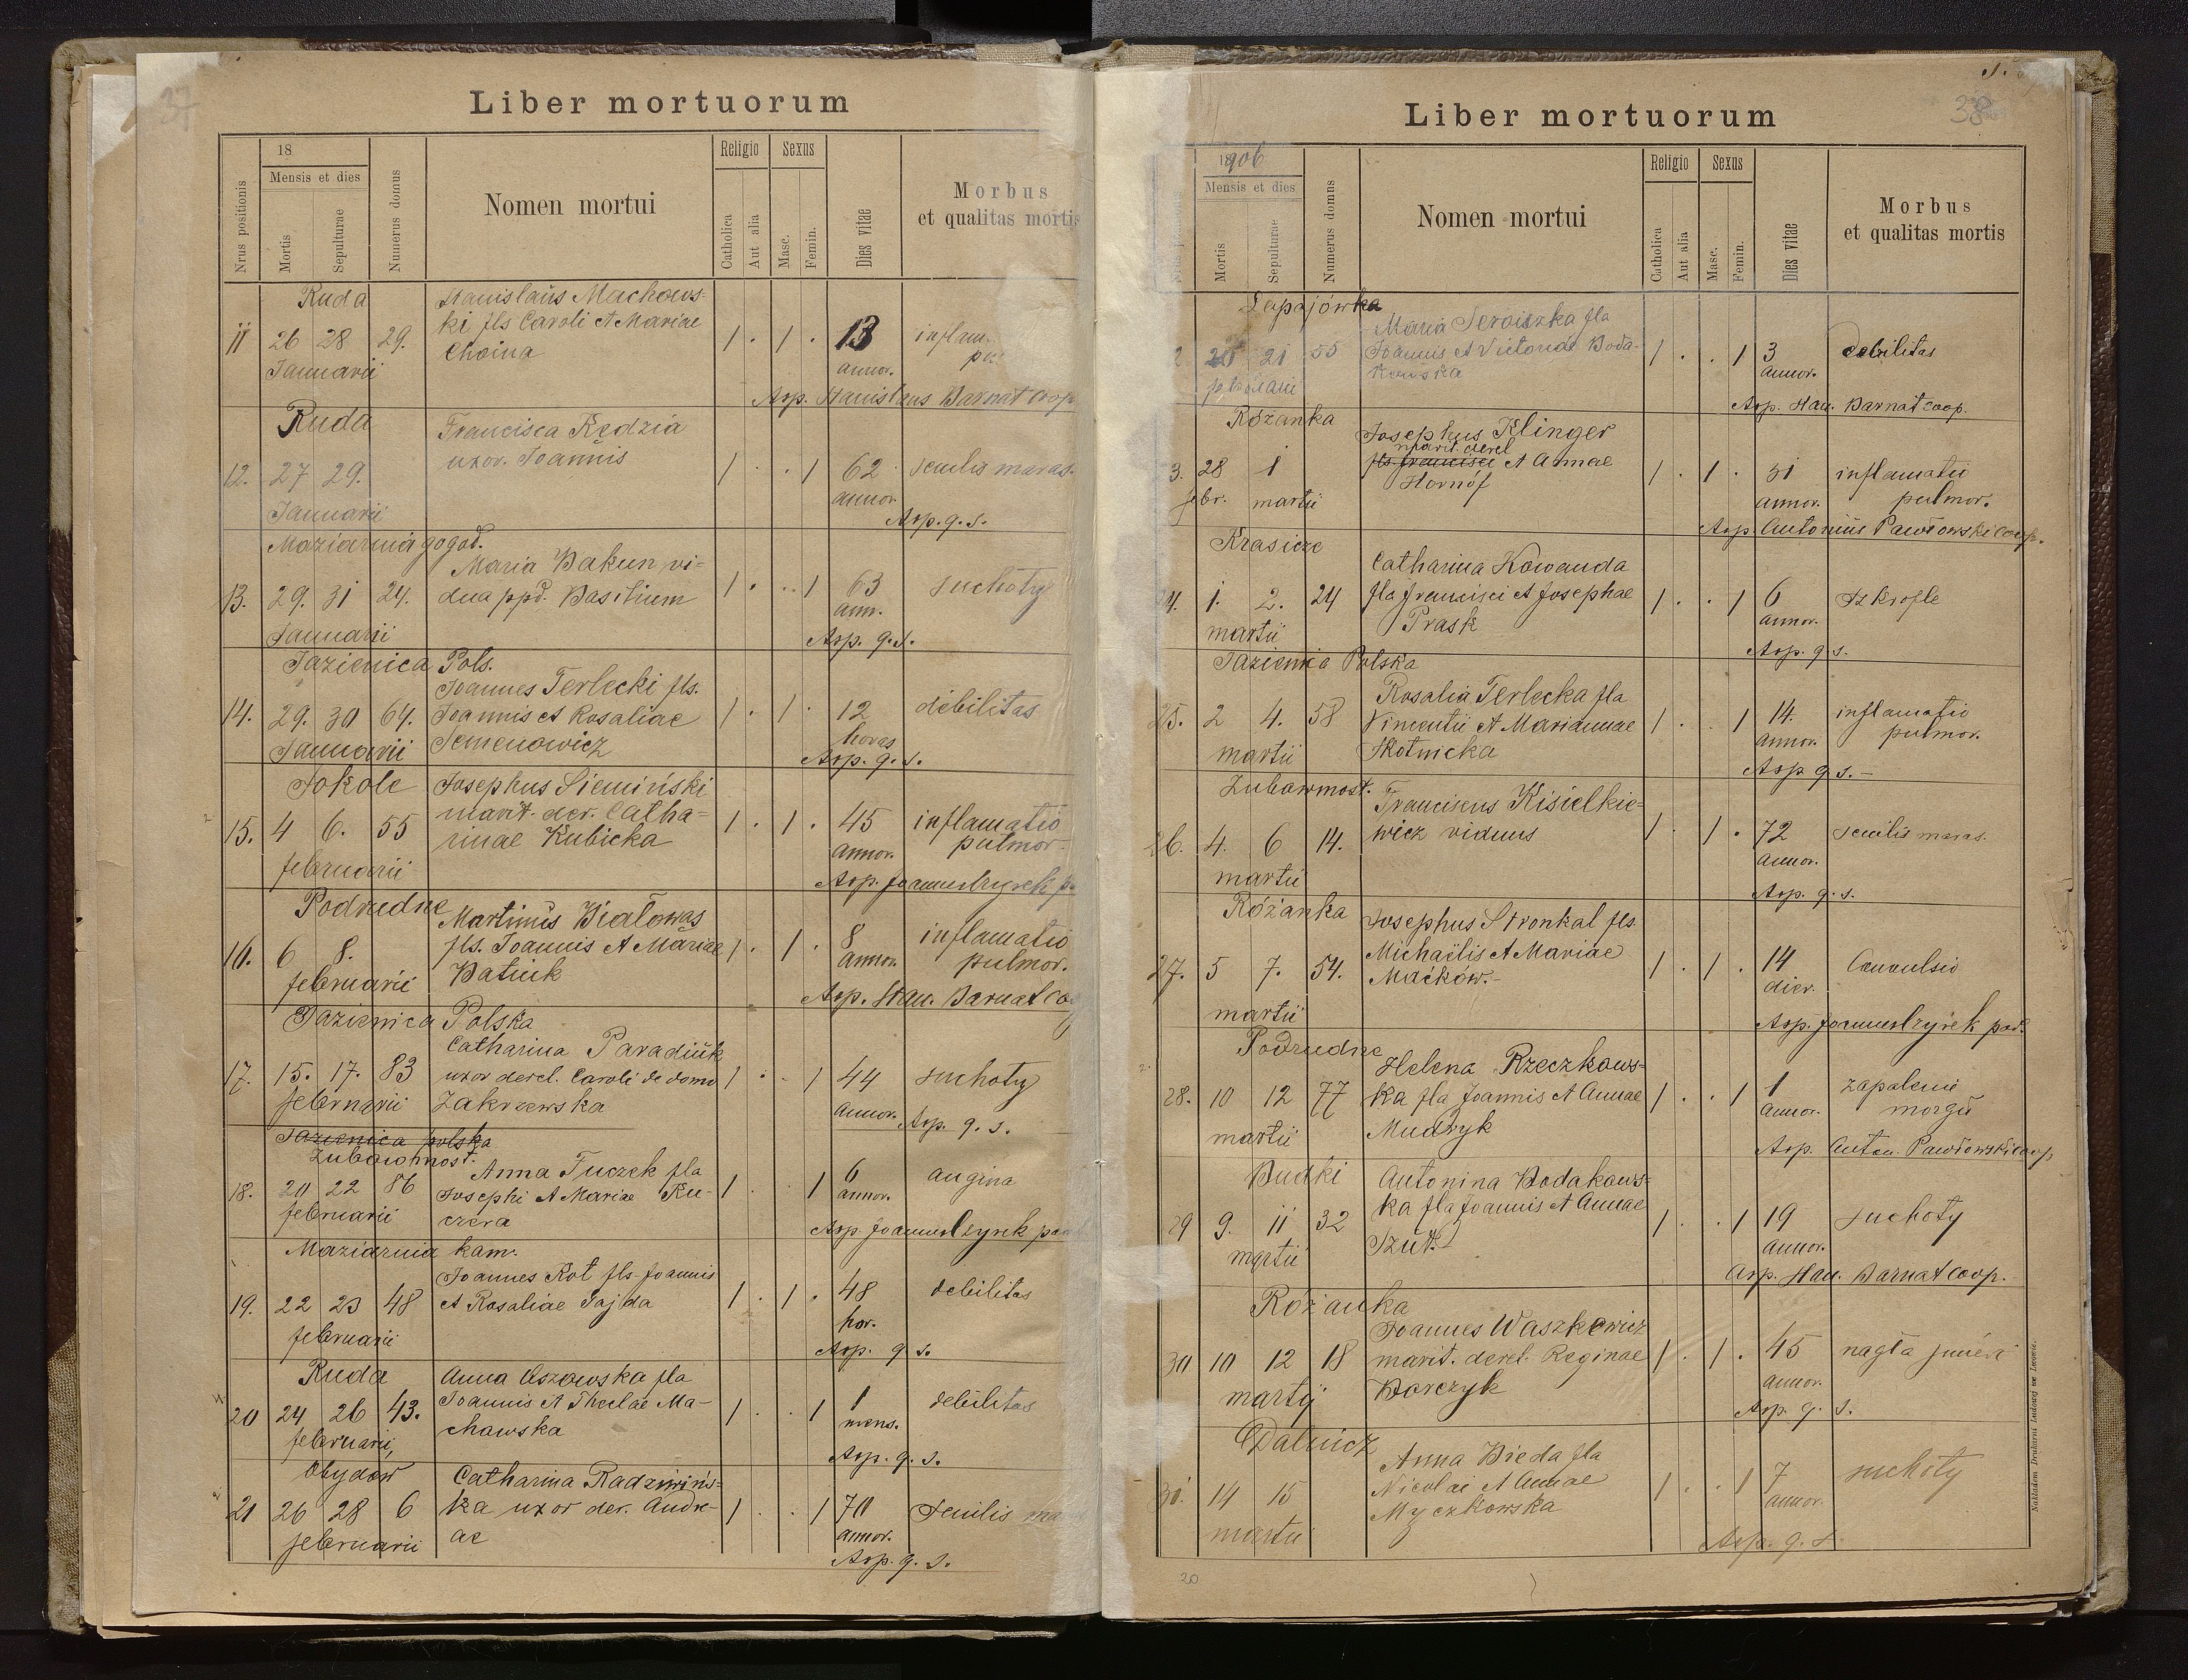 37
Liber mortuorum
Nrus positionis
18
Mensis et dies
Mortis
Sepulturae
Numerus domus
Nomen mortui
Religio
Catholica
Aut alia
Sexus
Masc.
Femin.
Dies vitae
Morbus
et qualitas mortis
Ruda
Stanislaus Machows-
11 26 28 29. ki fls Caroli et Mariae 1 . 1 . 13 inflam.
Januarii Choina annor.
Asp. Stanislaus Barnat coop
Ruda
Francisca Kędzia
uxor. Joannis
12. 27 29. 1 . . 1 62 senilis maras.
Januarii annor.
Asp. q. s.
Maziarnia gogoł.
Maria Bakun vi-
13. 29. 31 24. dua ppd. Basilium 1 . . 1 63 suchoty
Januarii ann.
Asp. q. s.
Jazienica Pols.
Joannes Terlecki fls.
14. 29. 30 64. Joannis et Rosaliae 1 . 1 . 12 debilitas
Januarii Semenowicz horas
Asp. q. s.
Sokole Josephus Siemiński
marit. der. Catha-
15. 4 6. 55 rinae Kubicka 1 . 1 . 45 inflamatio
februarii annor. pulmor.
Asp. Joannes Czyrek
Podrudne Martinus Białowąs
16. 6 8. fls. Joannis et Mariae 1 . 1 . 8 inflamatio
februarii Batiuk annor. pulmor.
Asp. Stan. Barnat
Jazienica Polska
Catharina Paradiuk
17. 15. 17. 83 uxor derel. Caroli de domo 1 . . 1 44 suchoty
februarii Zakrzewska annor.
Asp. q. s.
Jazienica polska
Zubowmost.
Anna Tuczek fla
18. 20 22 86 Josephi et Mariae Ku- 1 1 6 angina
februarii czera annor.
Asp Joannes Czyrek
Maziarnia kam.
Joannes Rot fls Joannis
19. 22 23 48 et Rosaliae Pajda 1 . 1 . 48 debilitas
februarii hor.
Asp. q s.
Ruda Anna Oszowska fla
20 24 26 43. Joannis et Theclae Ma- 1 . . 1 1 debilitas
februarii, chowska mens.
Asp. q. s.
Obydów Catharina Radziwińs-
21 26 28 6 ka uxor der. Andre- 1 . . 1 70 Senilis
februarii ae annor.
Asp. q. s.
38
Liber mortuorum
1906
Mensis et dies
Mortis
Sepulturae
Numerus domus
Nomen mortui
Religio
Catholica
Aut alia
Sexus
Masc.
Femin.
Dies vitae
Morbus
et qualitas mortis
Łapajówka
Maria fla
21 55 Joannis et Victoriae Boda- 1 . . 1 3 debilitas
kowska annor.
Asp. Stan. Barnat coop.
Różanka
Josephus Klinger
marit. derel
3. 28 1 fls francisci et Annae 1 . 1 . 31 inflamatii
febr. martii Hornóf annor. pulmor.
Asp. Antonius Pawłowski coop.
Krasicze
Catharina Kowanda
24. 1. 2. 24 fla francisci et Josephae 1 . . 1 6 Szkrofle
martii Prask annor.
Asp. q s.
Jazienica Polska
Rosalia Terlecka fla
25. 2 4. 58 Vincentii et Mariannae 1 . . 1 14. inflamatio
martii Skotnicka annor. pulmor.
Asp q s.-
Zubowmost.
Franciscus Kisielkie-
26. 4. 6 14. wicz viduus 1 . 1 . 72 senilis maras.
martii annor.
Asp. q. s.
Różanka
Josephus Stronkal fls.
Michaëlis et Mariae
27. 5 7. 54. Maćków.- 1 . 1 . 14 Convulsio
martii dier.
Asp. Joannes Czyrek par.
Podrudne
Helena Rzeczkows-
28. 10 12 77 ka fla Joannis et Annae 1 . . 1 1 zapalenie
martii Mudryk annor. mózgu
Asp. Anton. Pawłowski coop
Budki Antonina Bodakows-
ka fla Joannis et Annae
29 9. 11 32 Szút. 1 . . 1 19 suchoty
martii annor.
Asp. Stan. Barnat Coop.
Różanka
Joannes Waszkewicz
30 10 12 18 marit. derel. Reginae 1 . 1 . 45 nagła śmierć
martij Borczyk annor.
Asp. q. s.
Dalnicz
Anna Bieda fla
31. 14 15 Nicolai et Annae 1 . . 1 7 suchoty
martii Myczkowska annor.
Asp. q. s.
Nakładem Drukarni Ludowej we Lwowie.
20